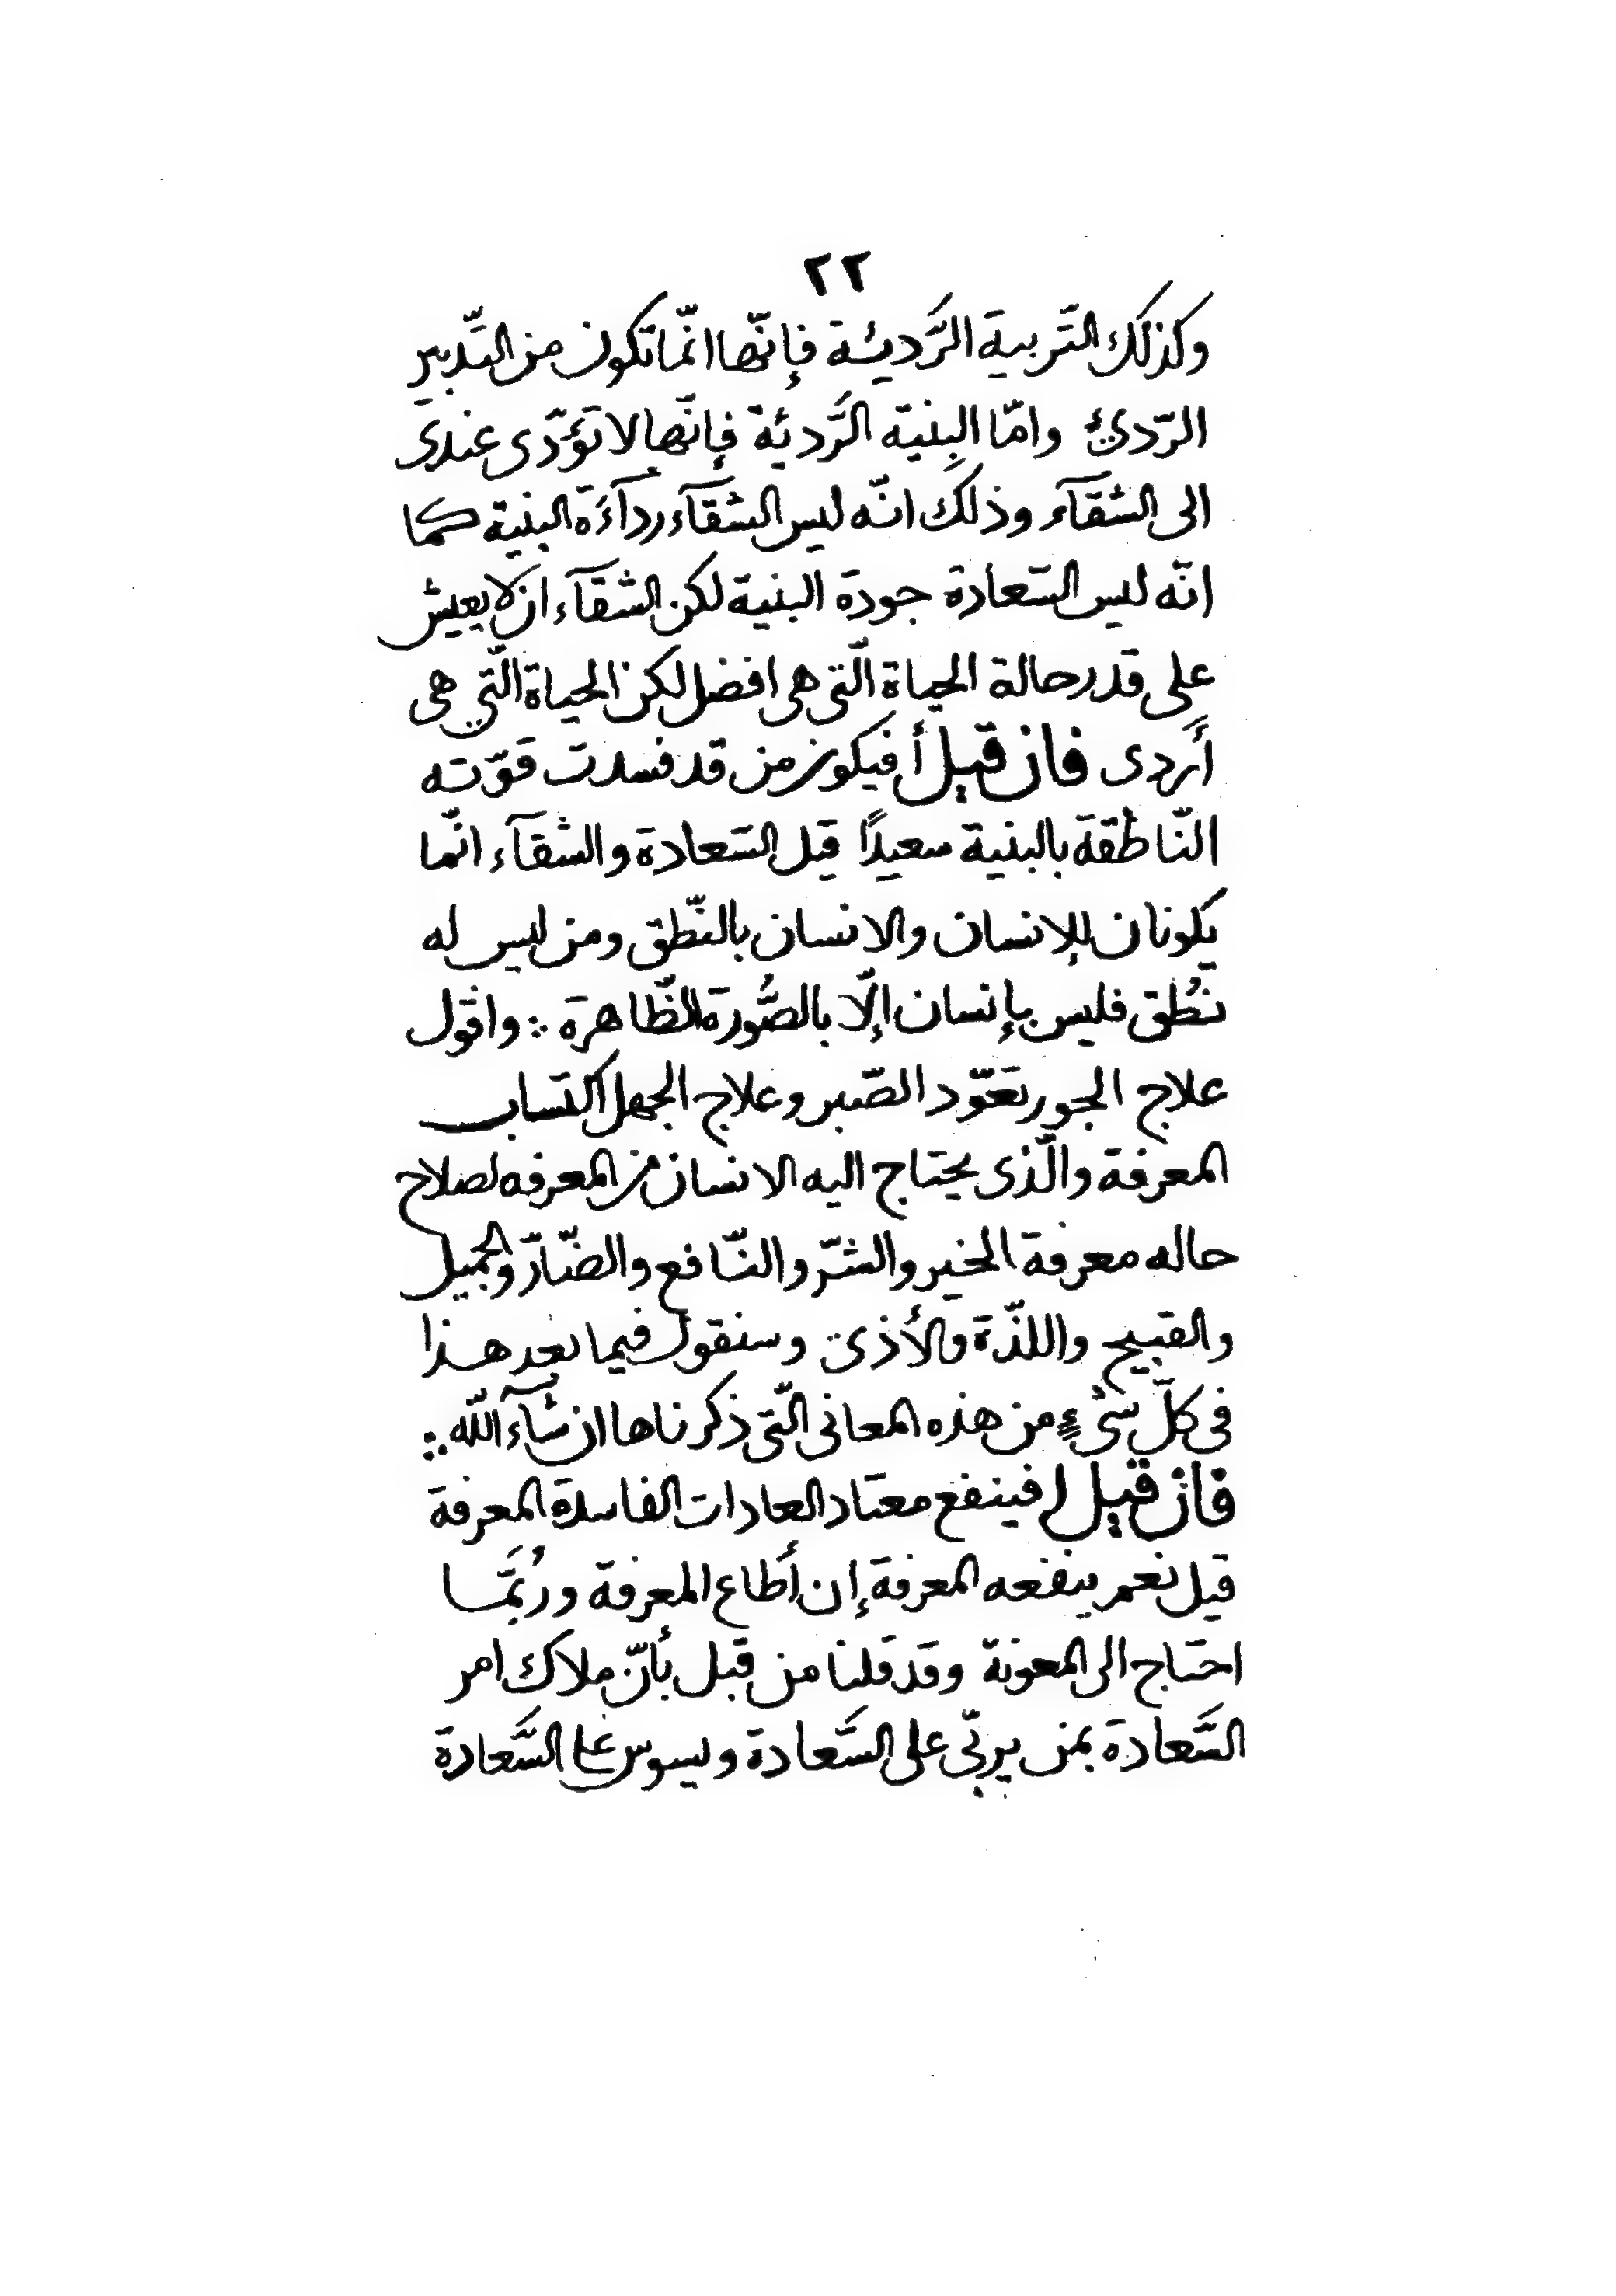 ٢٢
وكذلك التَّربية الرَّديئة فإنّها انّما تكون من التَّدبير
الرّديئ وامّا البِنية الرَّديئة فإنّها لا تؤدّى عندى
الى الشقآء وذلك انّه ليس الشقآء ردآءَة البنية كما
انّه ليس السّعادة جودة البنية لكن الشقآء ان لا يعيش
على قدر حالة الحياة الّتى هى افضل لكن الحياة الّتي هى
أردى فان قيل أفيكون من قد فسدت قوّته
النّاطقة بالبنية سعيدًا قيل السّعادة والشقآء انّما
يكونان للإنسان والانسان بالنّطق ومن ليس له
نُطق فليس بإنسان إلّا بالصُّورة الظّاهرة ؞ واقول
علاج الجور تعوّد الصّبر وعلاج الجهل اكتساب
المعرفة والّذى يحتاج اليه الانسان من المعرفه لصلاح
حاله معرفة الخير والشرّ والنّافع والضّارّ والجميل
والقبيح واللذّة والأذى وسنقول فيما بعد هذا
فى كلّ شىْءٍ من هذه المعانى الّتى ذكرناها ان شآء اللّه ؞
فان قيل افينفع معتاد العادات الفاسدة المعرفة
قيل نعم ينفعه المعرفة إن أطاع المعرفة ورُبَّما
احتاج الى المعونة وقد قلنا من قبل بأنّ ملاك امر
السَّعادة بمن يربّى على السَّعادة ويسوس على السَّعادة